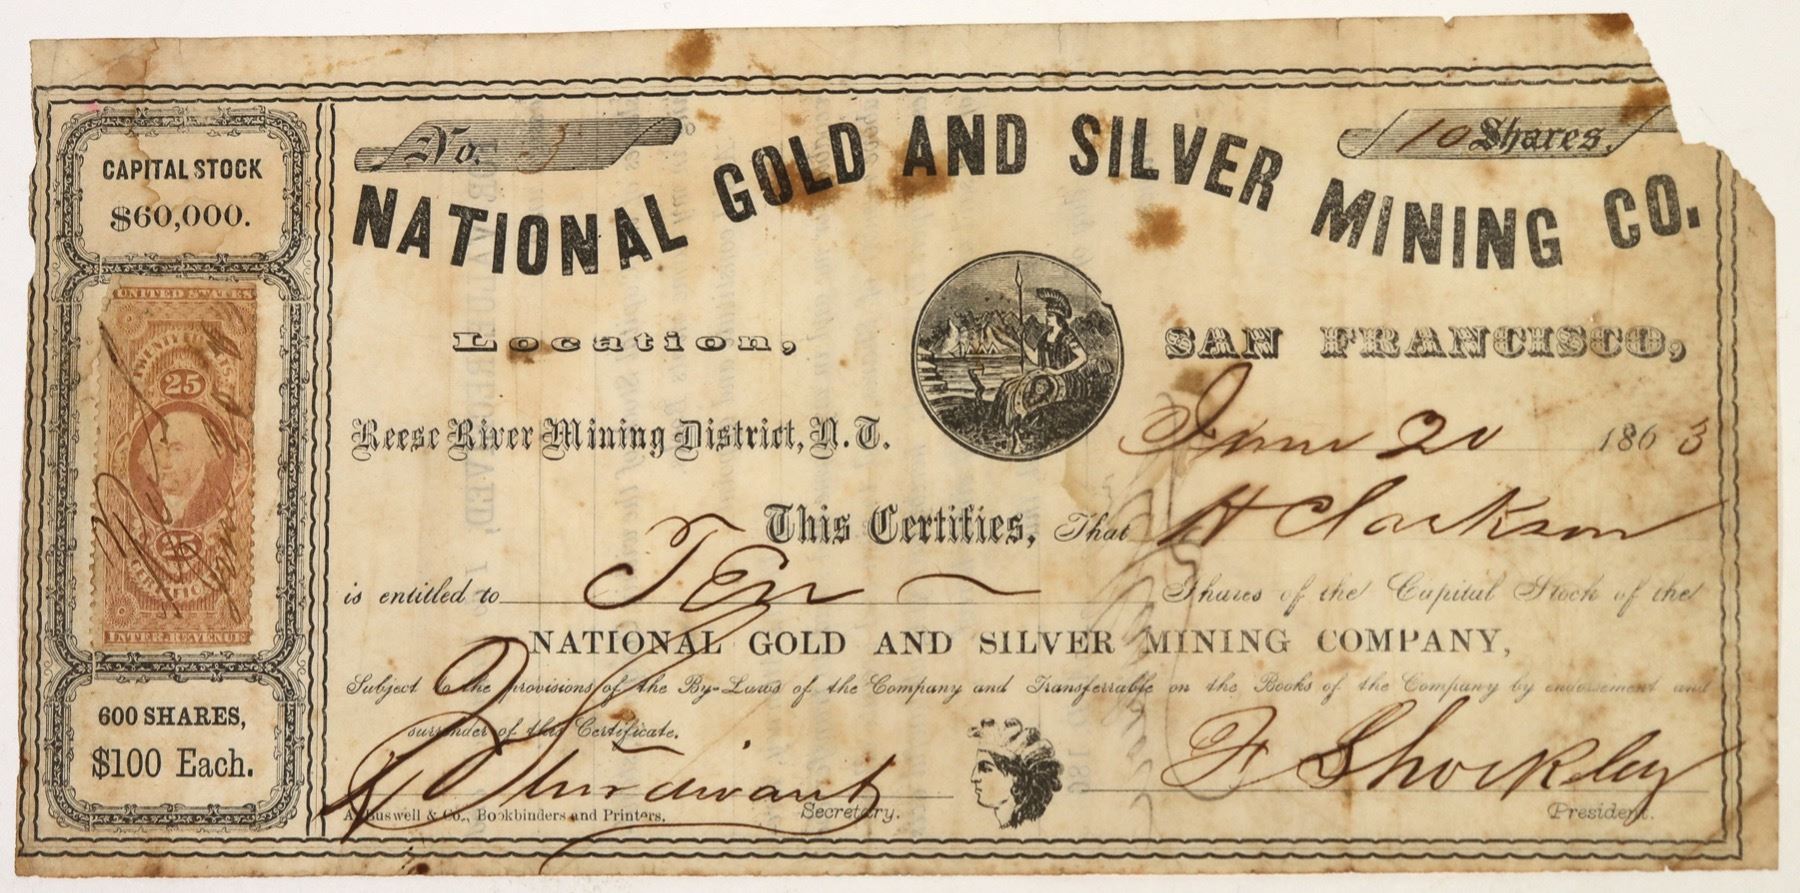 CAPITAL STOCK
$60,000.
UNITED STATES
25
25
INTER. REVENUE
600 SHARES,
$100 Each.
No.
10 Shares.
NATIONAL GOLD AND SILVER MINING CO.
Location,
SAN FRANCISCO,
Reese River Mining District, N. T.
June 20 1863
This Certifies, That H Clarkson
is entitled to Ten Shares of the Capital Stock of the
NATIONAL GOLD AND SILVER MINING COMPANY,
Subject to the provisions of the By-Laws of the Company and Transferrable on the Books of the Company by endorsement and
surrender of this Certificate.
F Shockley
A. Buswell & Co., Bookbinders and Printers.
Secretary.
President.